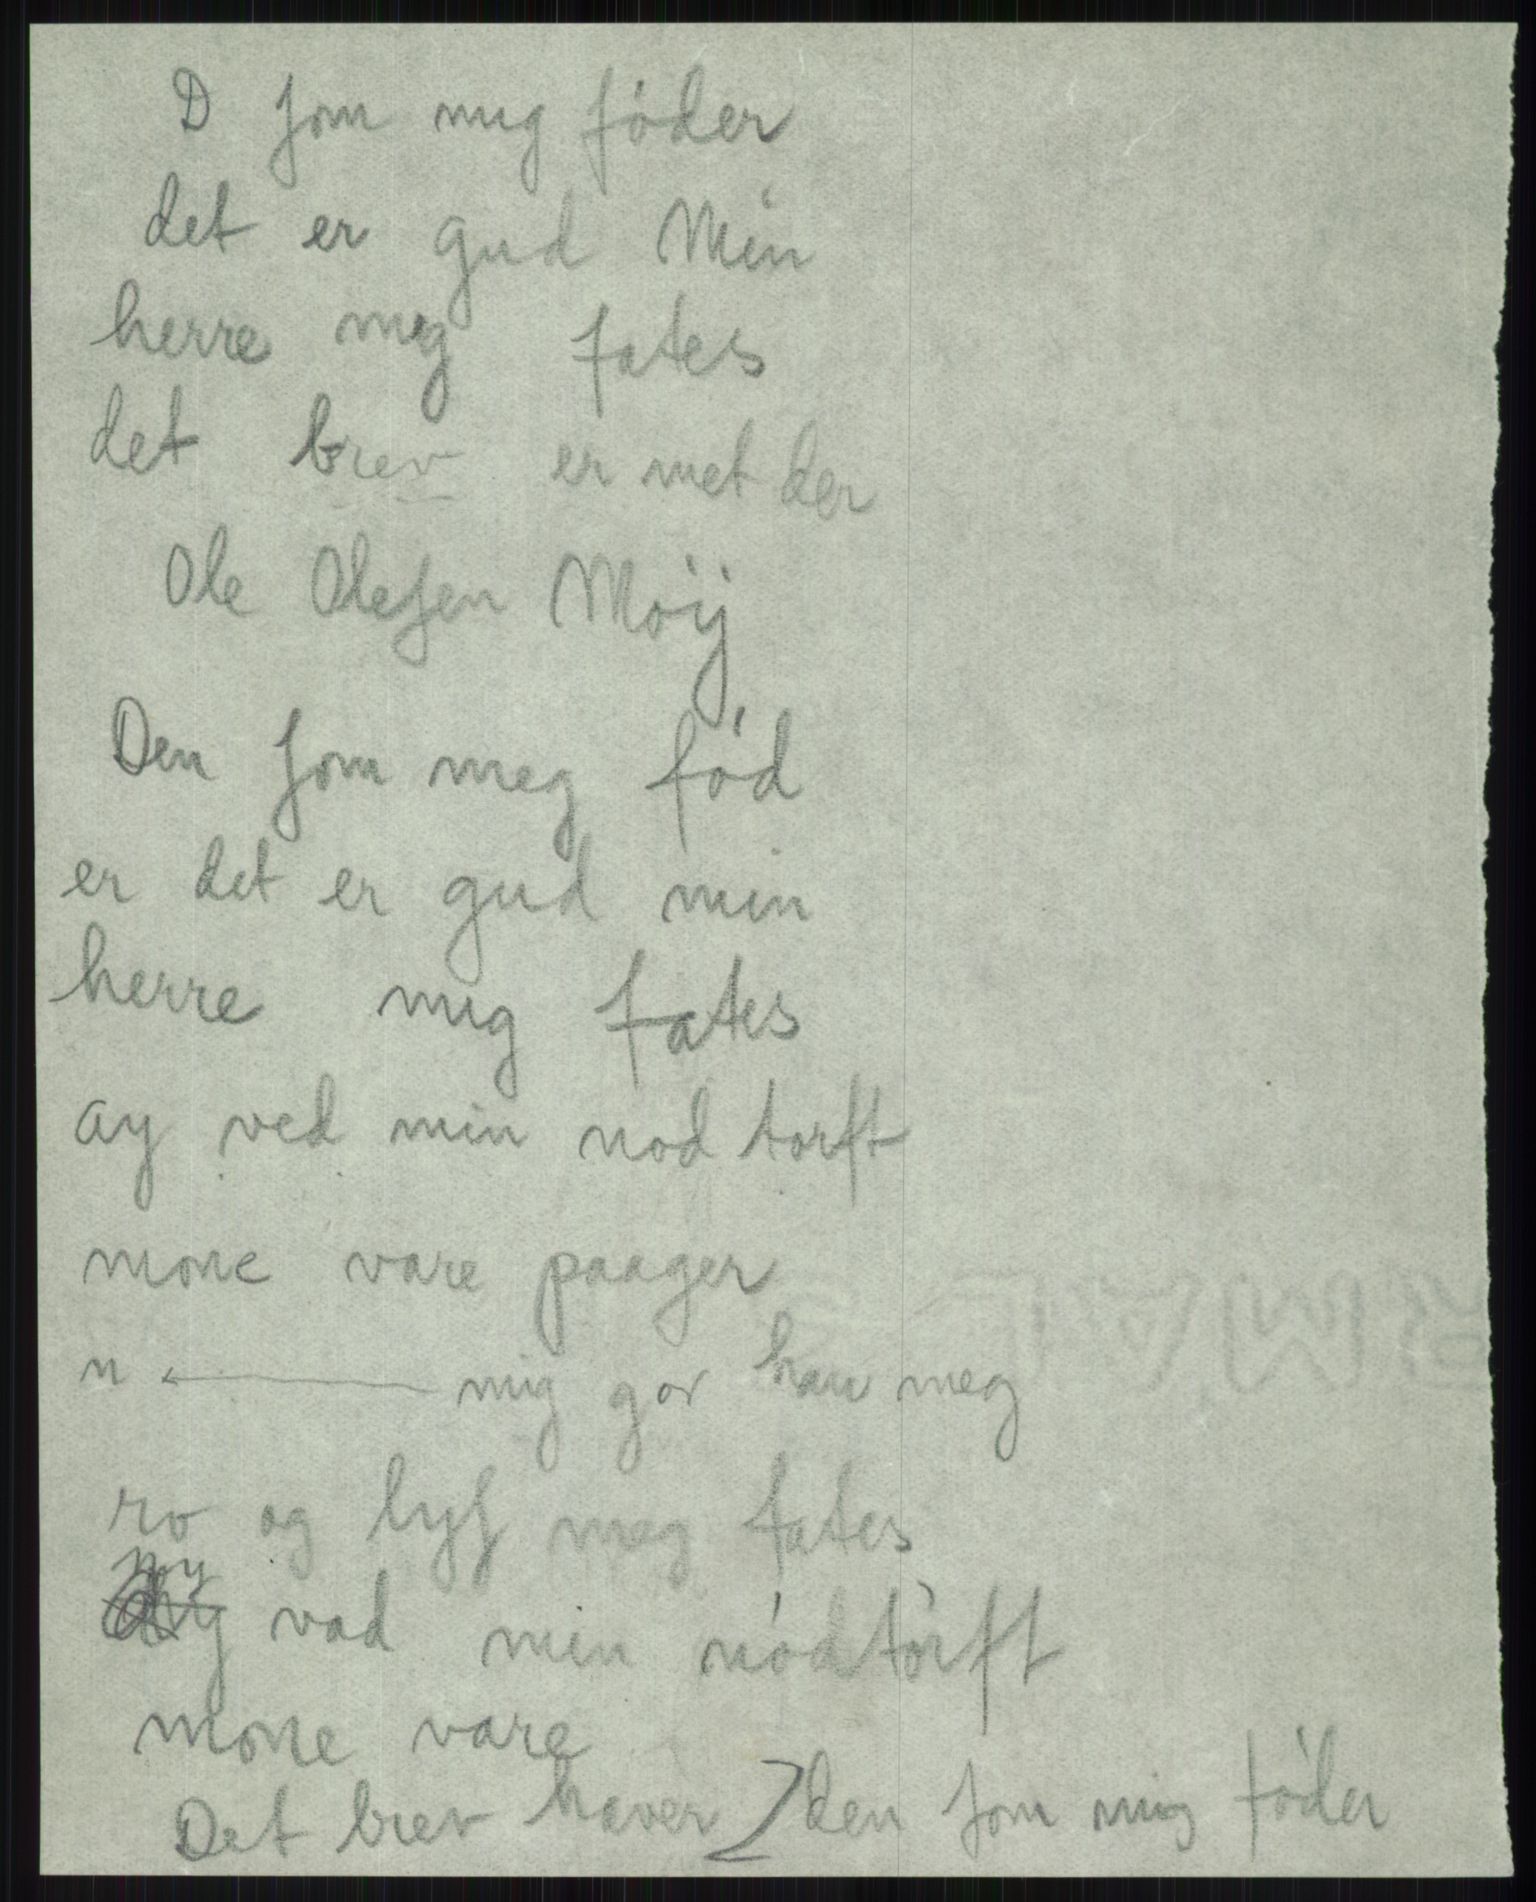 D som mig føder
det er gud Min
herre mig fates
det brev er met der
Ole Olesen Moij
Den som meg fød
er det er gud min
herre mig fates
ay ved min nod torft
mone vare paager
n ← mig gor han meg
ro og lyf meg fates
ny vad min nódtórft
mone vare
Det brev haver den som mig føder